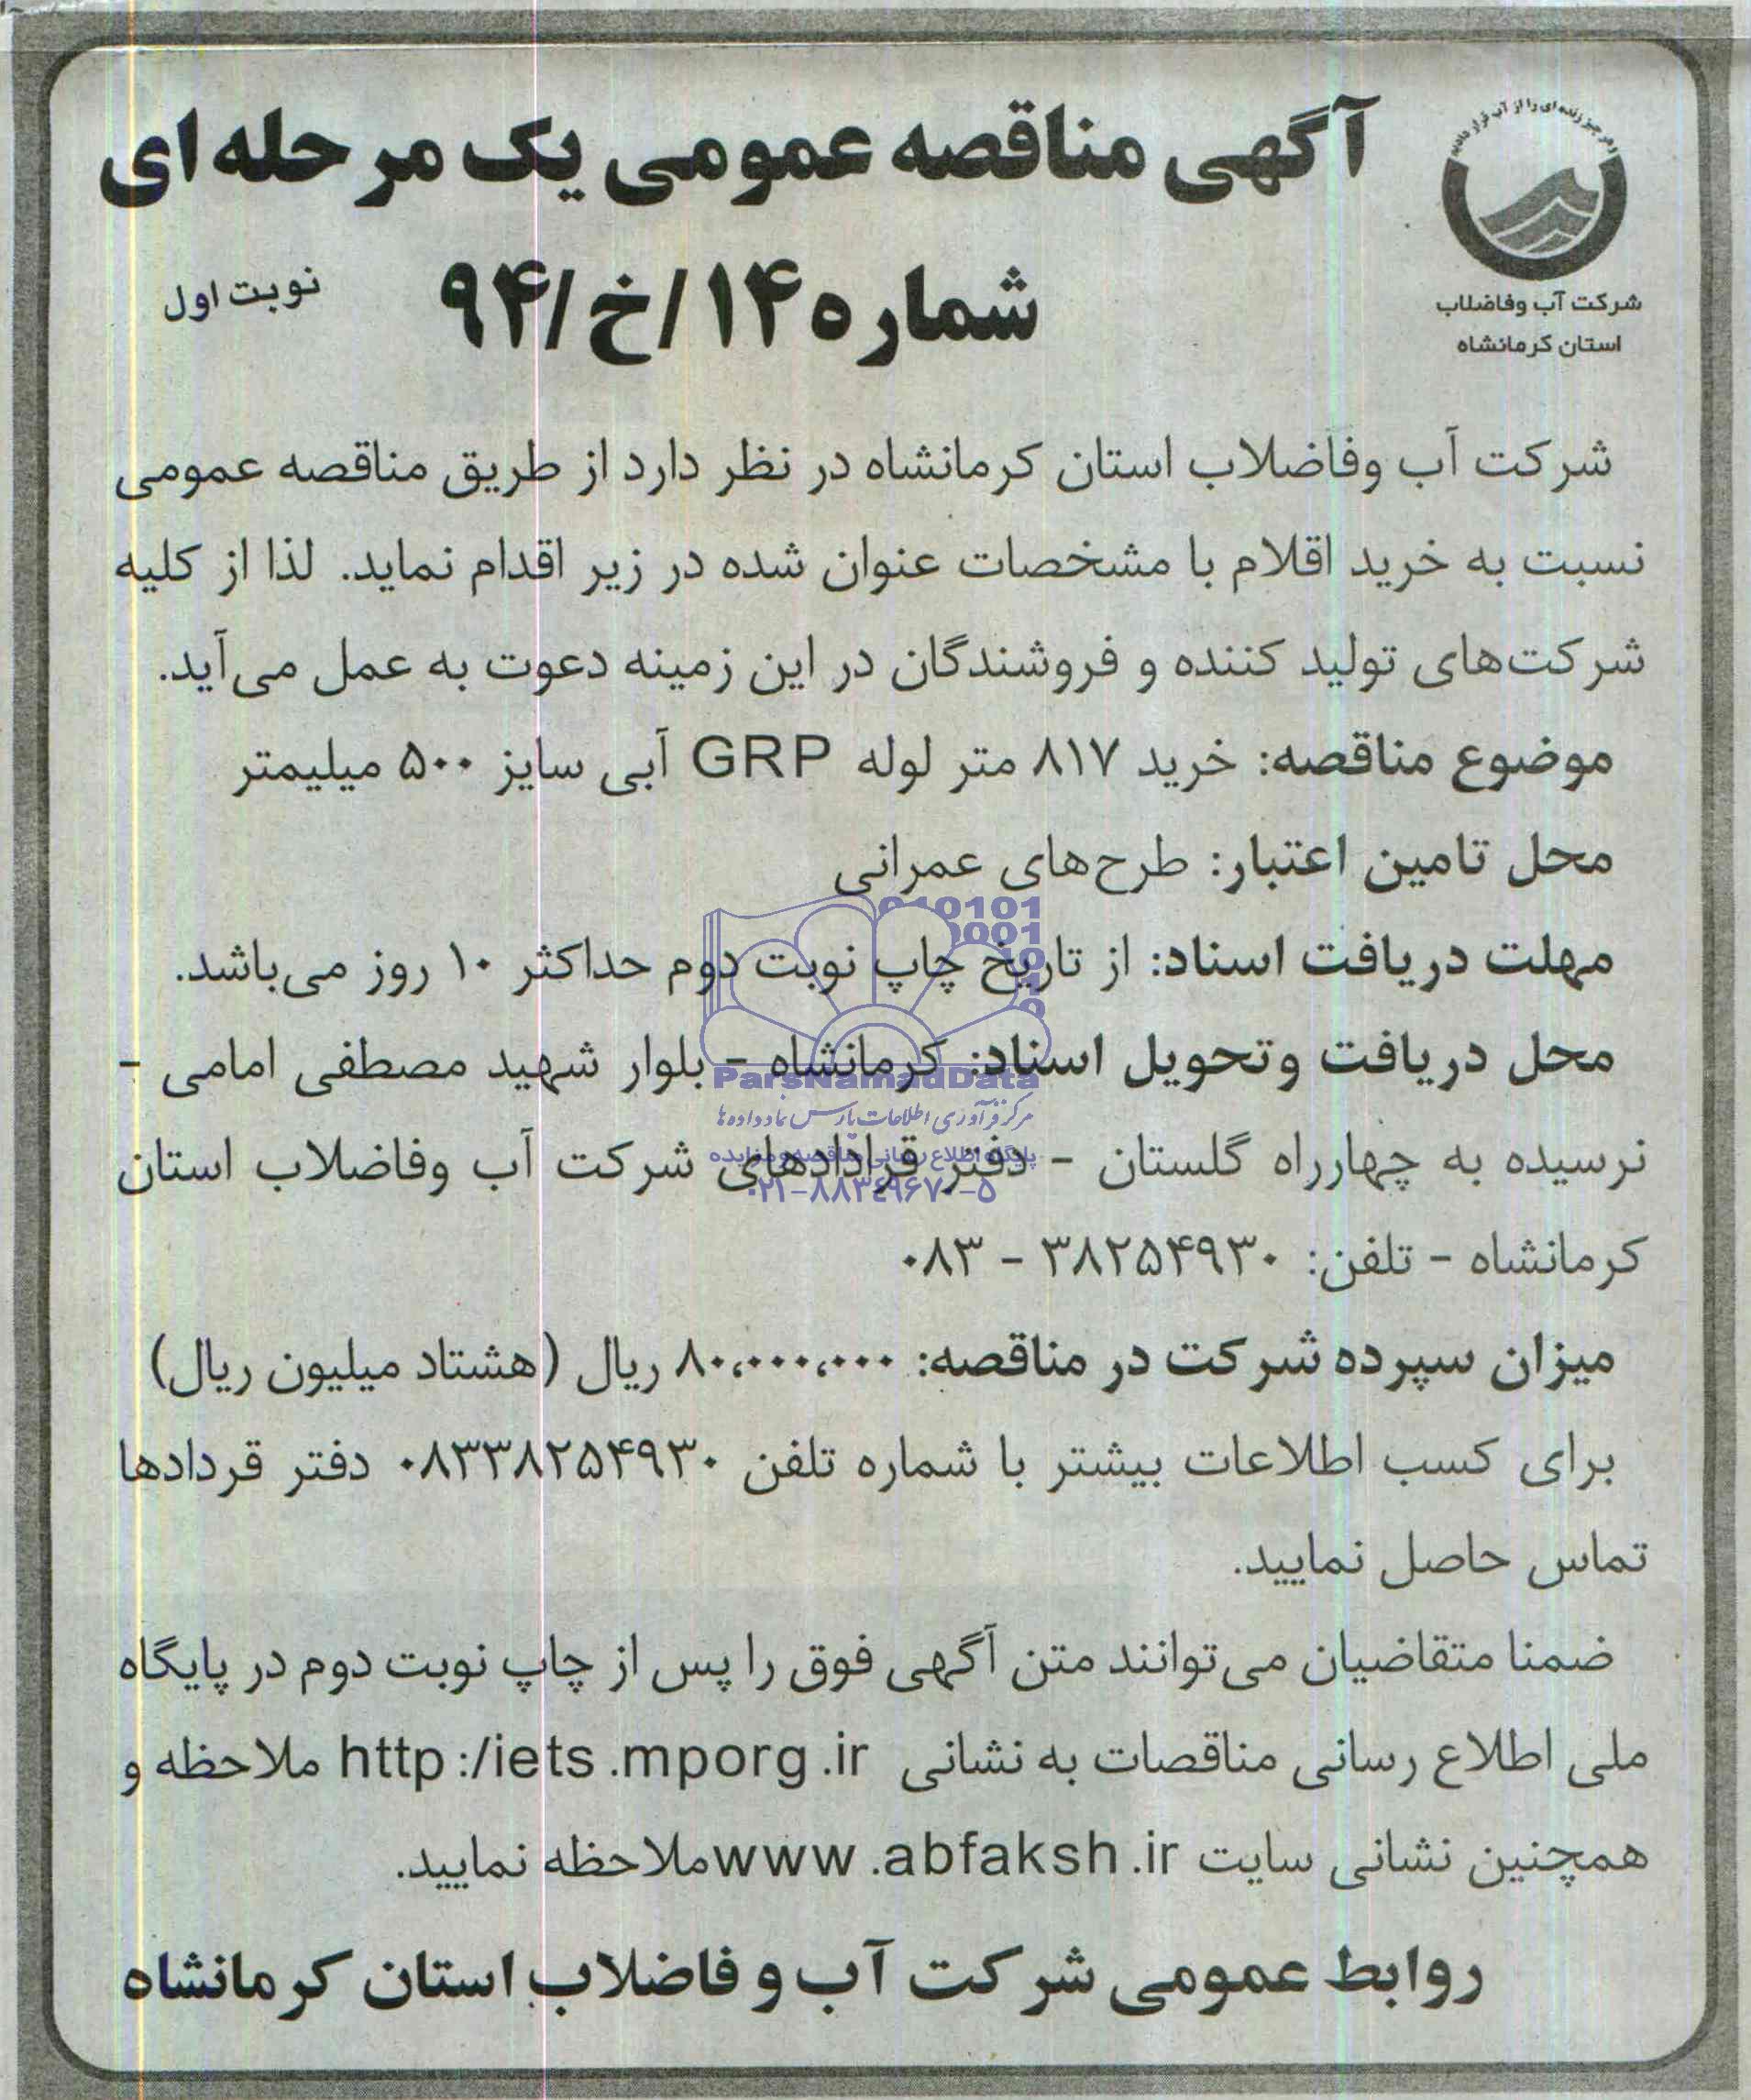 و هر چیز زنده ای را از آب قرار دادیم
شرکت آب وفاضلاب
استان کرمانشاه
آگهی مناقصه عمومی یک مرحله ای
شماره ۱۴/خ/۹۴
نوبت اول
شرکت آب وفاضلاب استان کرمانشاه در نظر دارد از طریق مناقصه عمومی
نسبت به خرید اقلام با مشخصات عنوان شده در زیر اقدام نماید. لذا از کلیه
شرکت‌های تولید کننده و فروشندگان در این زمینه دعوت به عمل می‌آید.
موضوع مناقصه: خرید ۸۱۷ متر لوله GRP آبی سایز ۵۰۰ میلیمتر
محل تامین اعتبار: طرح‌های عمرانی
مهلت دریافت اسناد: از تاریخ چاپ نوبت دوم حداکثر ۱۰ روز می‌باشد.
محل دریافت وتحویل اسناد: کرمانشاه - بلوار شهید مصطفی امامی -
نرسیده به چهارراه گلستان - دفتر قرادادهای شرکت آب وفاضلاب استان
کرمانشاه - تلفن: ۳۸۲۵۴۹۳۰ - ۰۸۳
میزان سپرده شرکت در مناقصه: ۸۰،۰۰۰،۰۰۰ ریال (هشتاد میلیون ریال)
برای کسب اطلاعات بیشتر با شماره تلفن ۰۸۳۳۸۲۵۴۹۳۰ دفتر قردادها
تماس حاصل نمایید.
ضمنا متقاضیان می‌توانند متن آگهی فوق را پس از چاپ نوبت دوم در پایگاه
ملی اطلاع رسانی مناقصات به نشانی http :/iets .mporg .ir ملاحظه و
همچنین نشانی سایت www .abfaksh .ir ملاحظه نمایید.
روابط عمومی شرکت آب و فاضلاب استان کرمانشاه
ParsNamadData
مرکز فرآوری اطلاعات پارس نماد داده ها
پایگاه اطلاع رسانی مناقصه و مزایده
۰۲۱-۸۸۳۴۹۶۷۰-۵